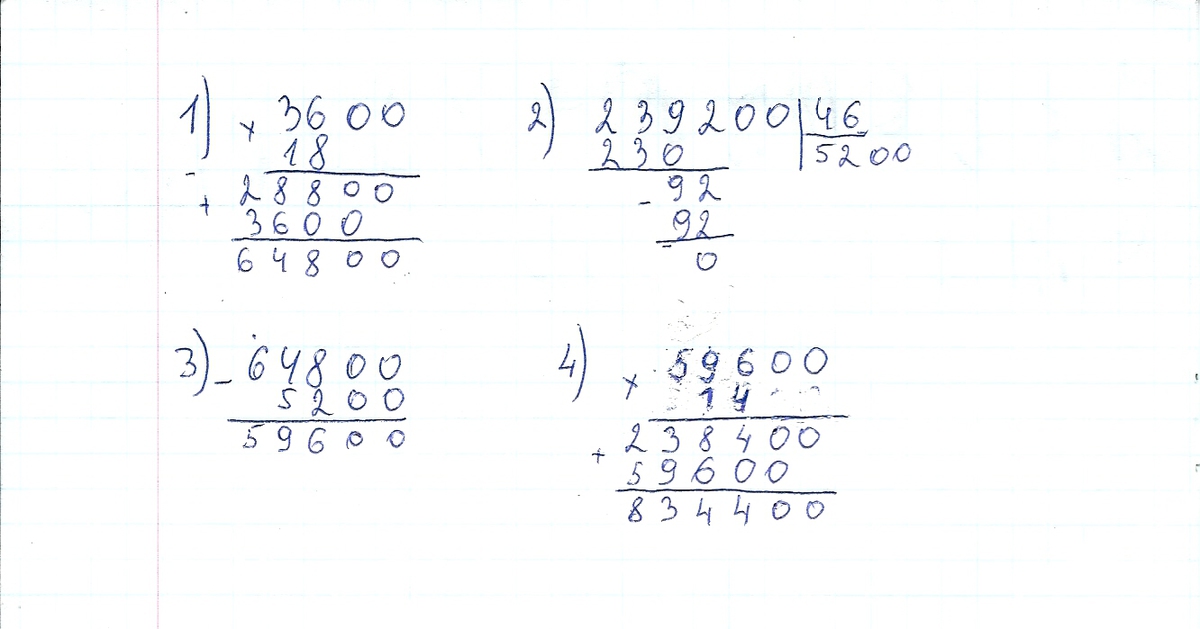 1) × 3600
18
+ 28800
3600
64800
2) 239200 | 46
230 | 5200
- 92
92
0
3) - 64800
5200
59600
4) × 59600
14
+ 238400
59600
834400